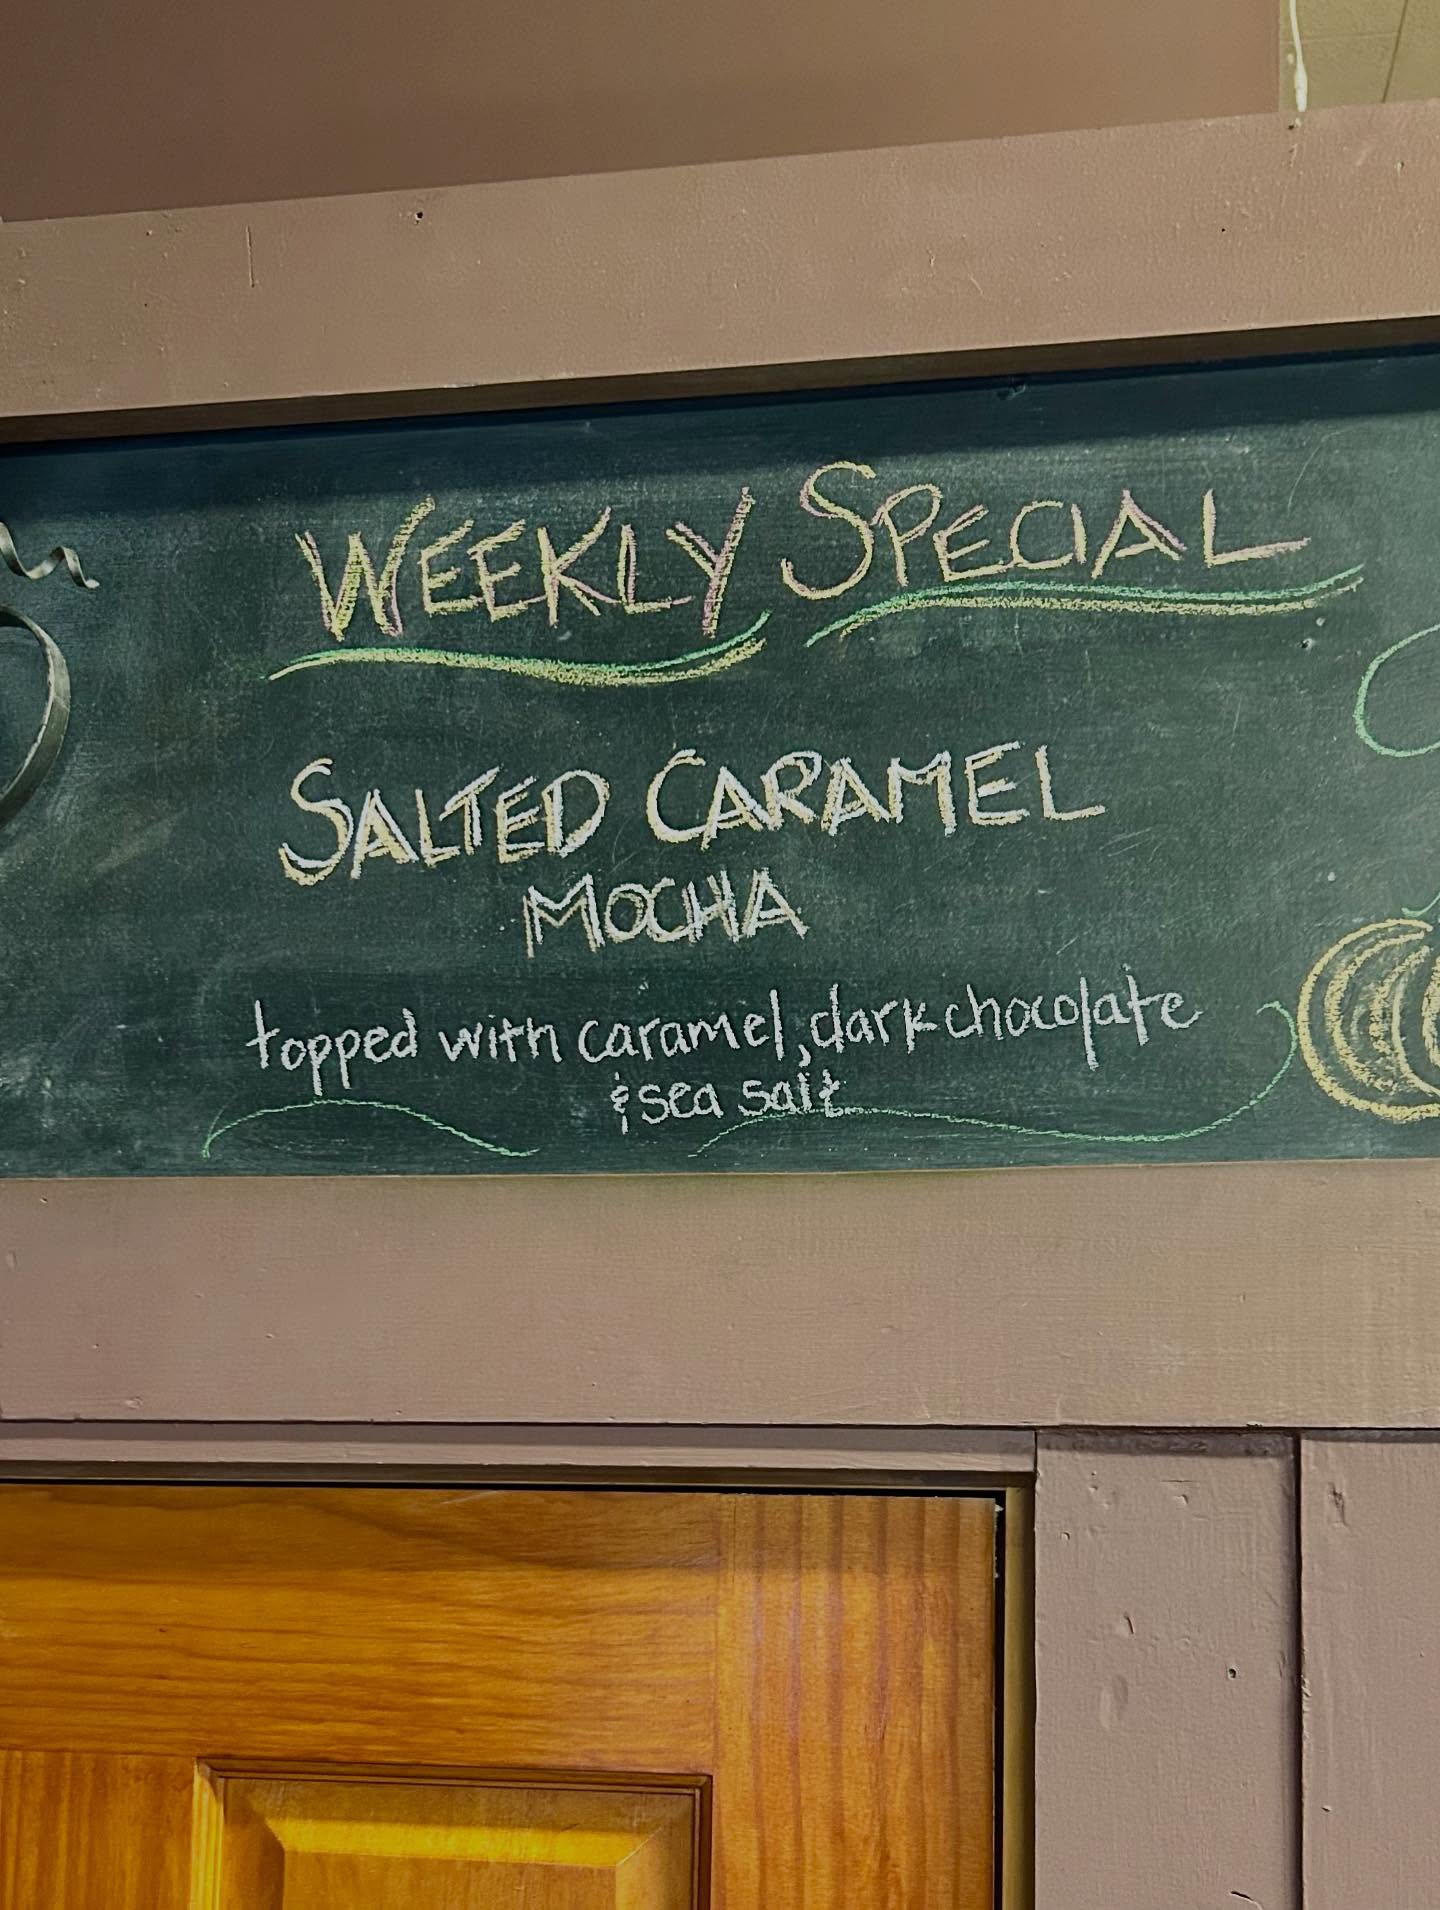 WEEKLY SPECIAL
SALTED CARAMEL
MOCHA
topped with caramel, dark chocolate
& sea salt